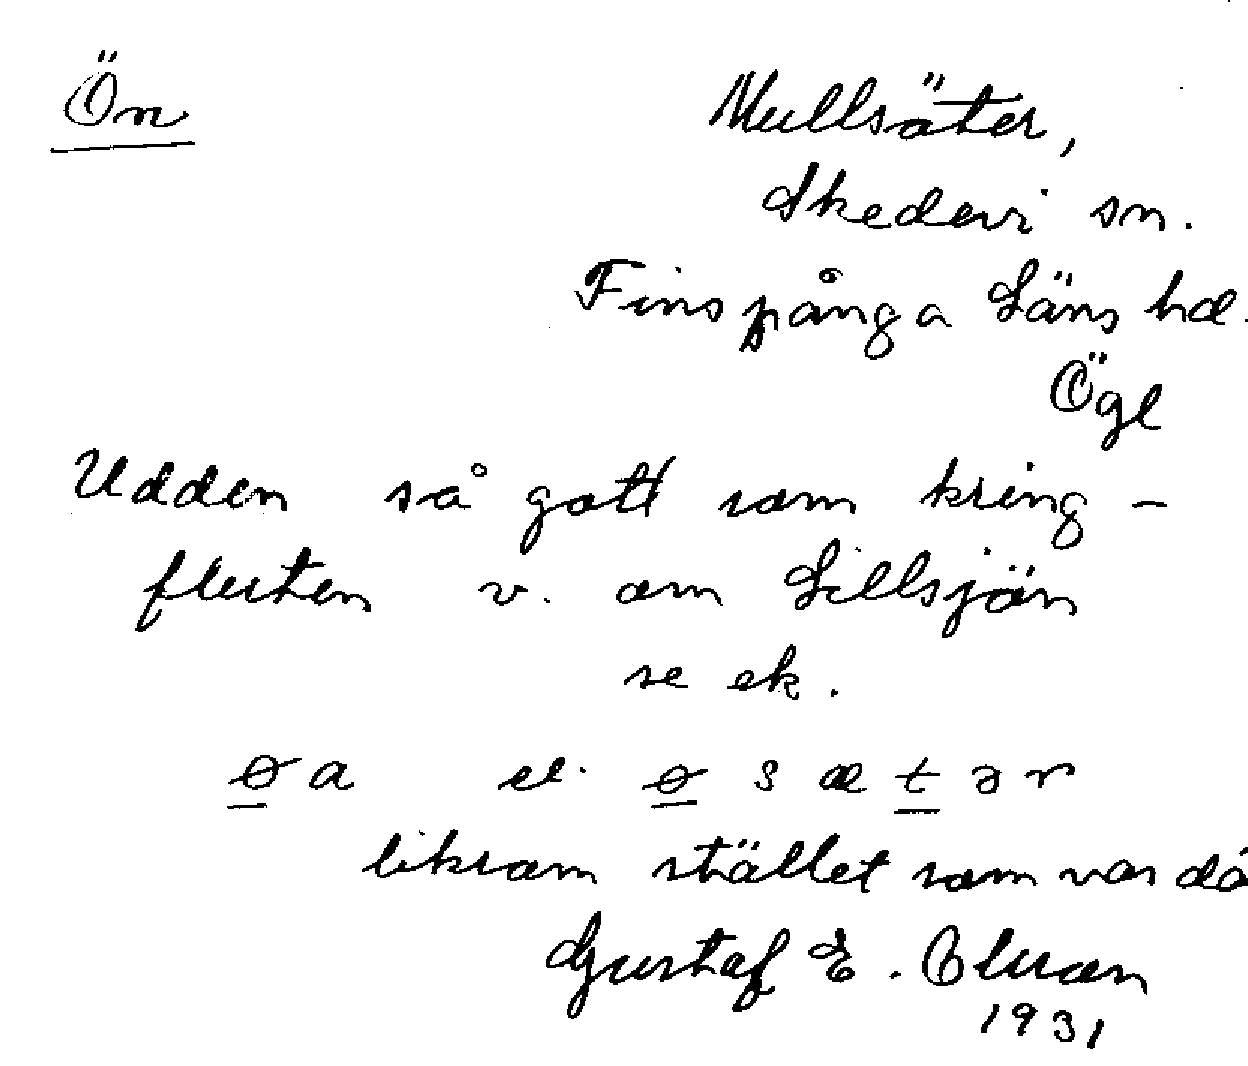 Ön
Mullsäter,
Skedevi sn.
Finspånga Läns hd.
Ögl
Udden så gott som kring-
fluten v. om Lillsjön
se ek.
ɵa el. ɵsætər
liksom stället som var då
Gustaf E.
1931